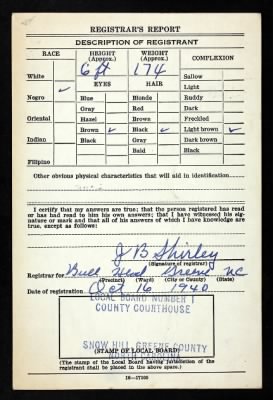 REGISTRAR'S REPORT
DESCRIPTION OF REGISTRANT
RACE HEIGHT (Approx.) WEIGHT (Approx.) COMPLEXION
6 ft 174
White ✓ EYES HAIR Sallow
Light
Negro Blue Blonde Ruddy
Gray Red Dark
Oriental Hazel Brown Freckled
Brown ✓ Black ✓ Light brown ✓
Indian Black Gray Dark brown
Bald Black
Filipino
Other obvious physical characteristics that will aid in identification
I certify that my answers are true; that the person registered has read
or has had read to him his own answers; that I have witnessed his sig-
nature or mark and that all of his answers of which I have knowledge are
true, except as follows:
J B Shirley
(Signature of registrar)
Registrar for Bull Head Greene NC
(Precinct) (Ward) (City or County) (State)
Date of registration Oct 16 1940
LOCAL BOARD NUMBER 1
COUNTY COURTHOUSE
SNOW HILL, GREENE COUNTY
NORTH CAROLINA
(STAMP OF LOCAL BOARD)
(The stamp of the Local Board having jurisdiction of the
registrant shall be placed in the above space.)
16—17105